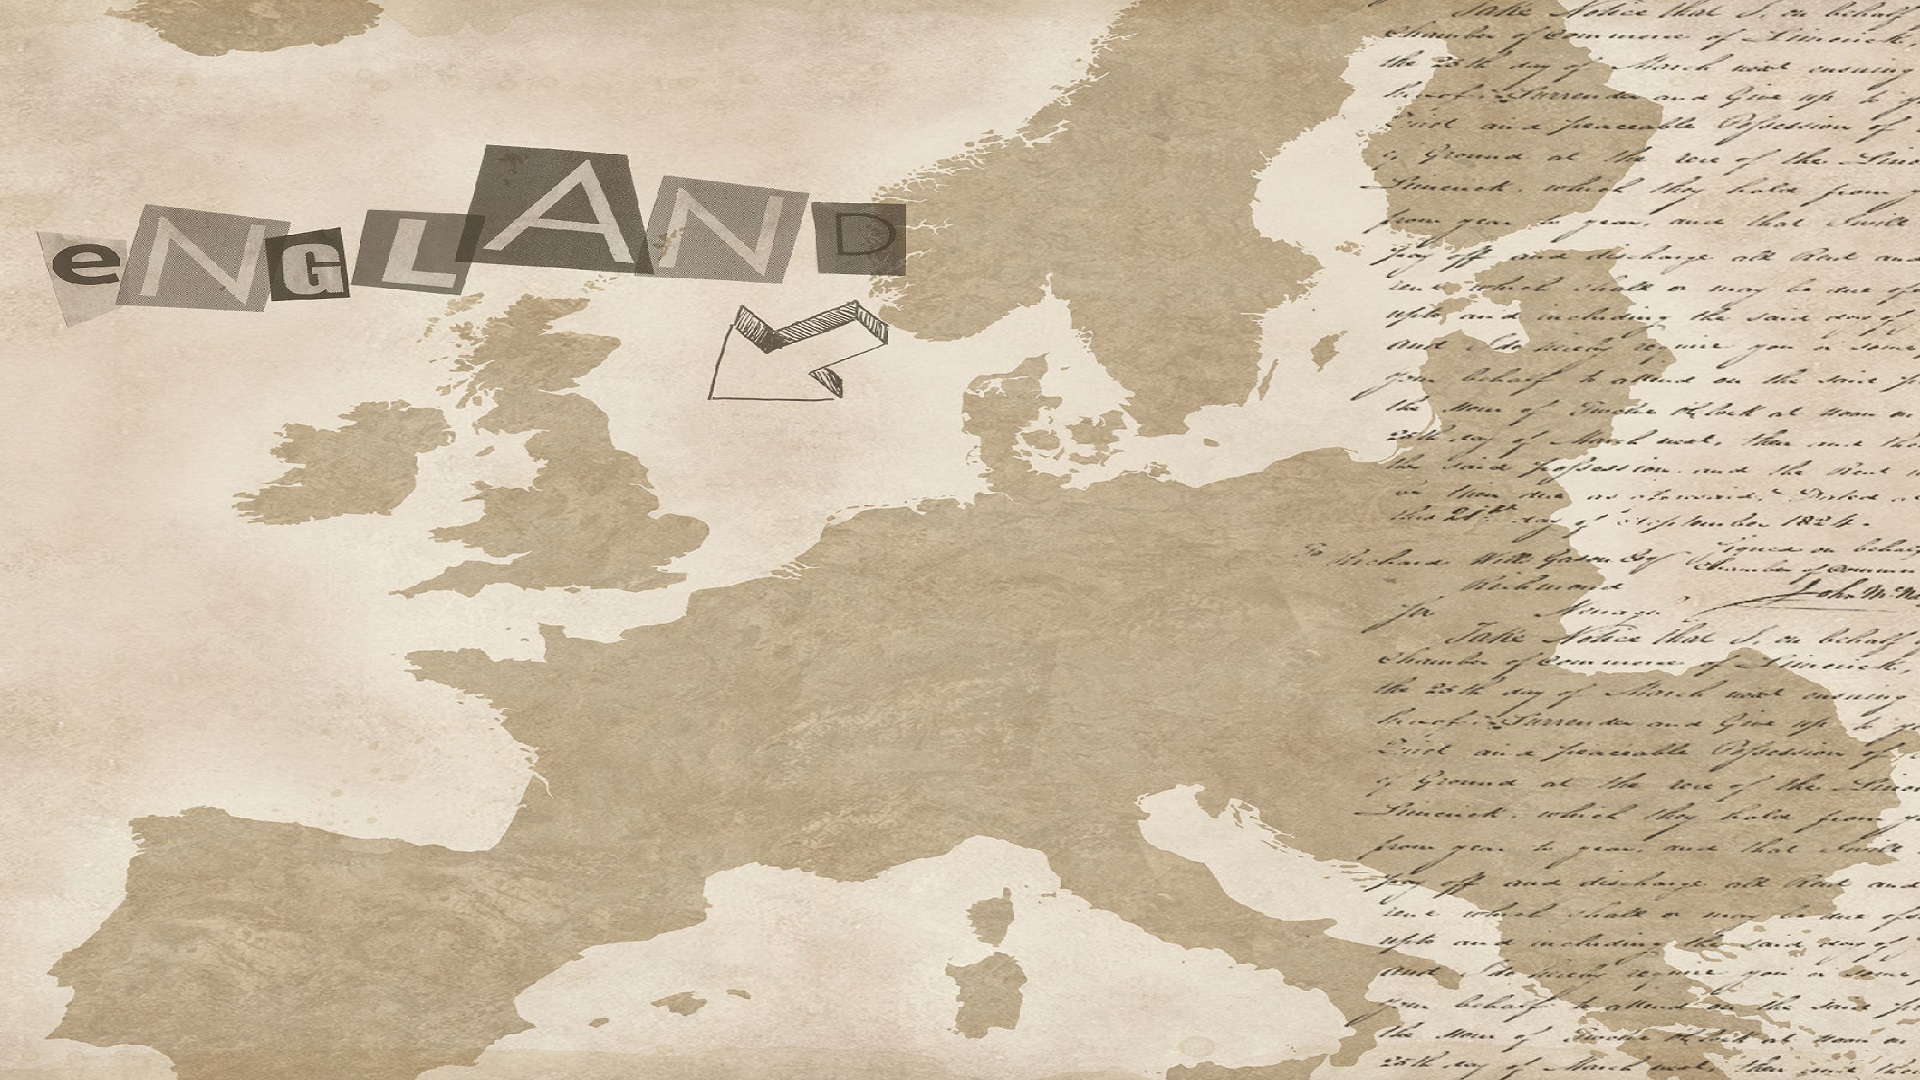 eNGLAND
Take Notice that I, on behalf
Chamber of Commerce of Limerick,
the 25th day of March next ensuing
Surrender and Give up
and peaceable Possession of
Ground at the rere of the
Limerick, which they hold from
from year to year, and that
pay off and discharge all Rent and
which shall or may be due
upto and including the said day of
and I do hereby require you or some
your behalf to attend on the said
the Hour of Twelve O'Clock at noon on
25th day of March next, then and
the said possession and the Rent
on then due as aforesaid. Dated
this 21st day of September 1824.
Signed on behalf
To Richard Wills Gason Esqr Chamber of Commer
Richmond John McNa
Nenagh
Take Notice that I, on behalf
Chamber of Commerce of Limerick,
the 25th day of March next ensuing
Surrender and Give up
and peaceable Possession of
Ground at the rere of the
Limerick, which they hold from
from year to year, and that
pay off and discharge all Rent and
which shall or may be due
upto and including the said day of
and I do hereby require you or some
your behalf to attend on the said
the Hour of Twelve O'Clock at noon on
25th day of March next, then and